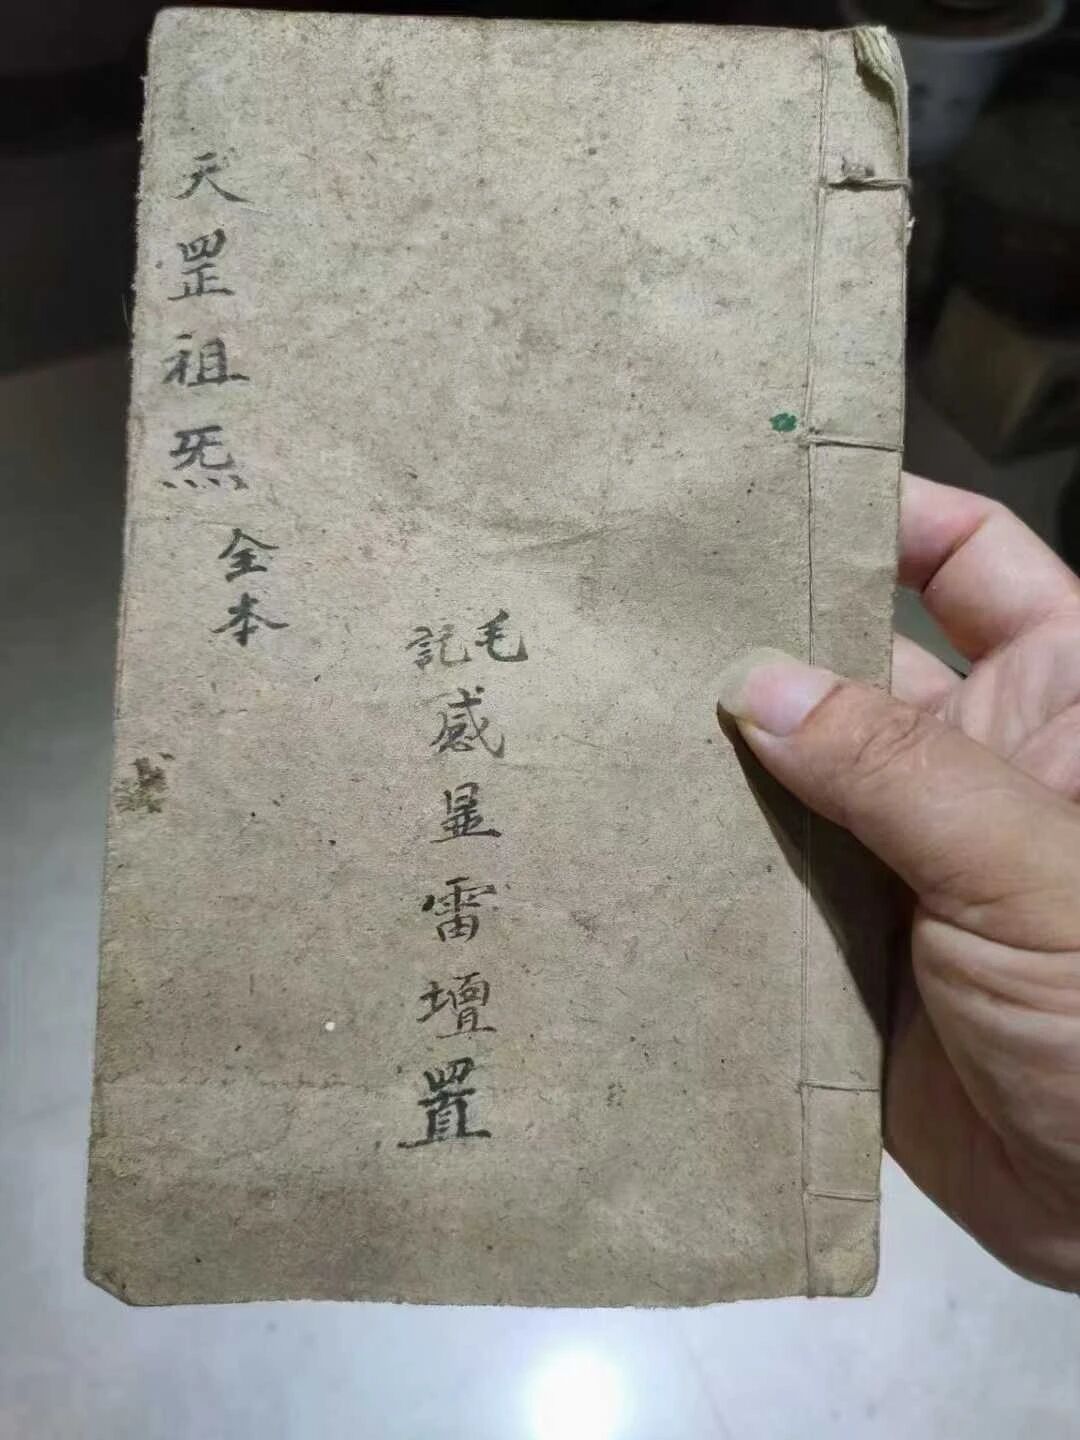 毛記
感显雷壇置
天罡祖炁全本